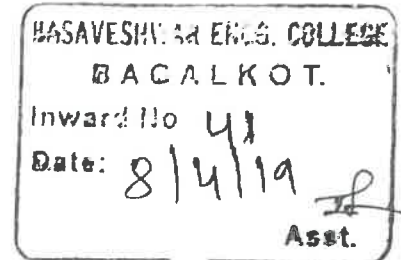 BASAVESHWAR ENGG. COLLEGE
BAGALKOT.
Inward No 41
Date: 8/4/19
Asst.